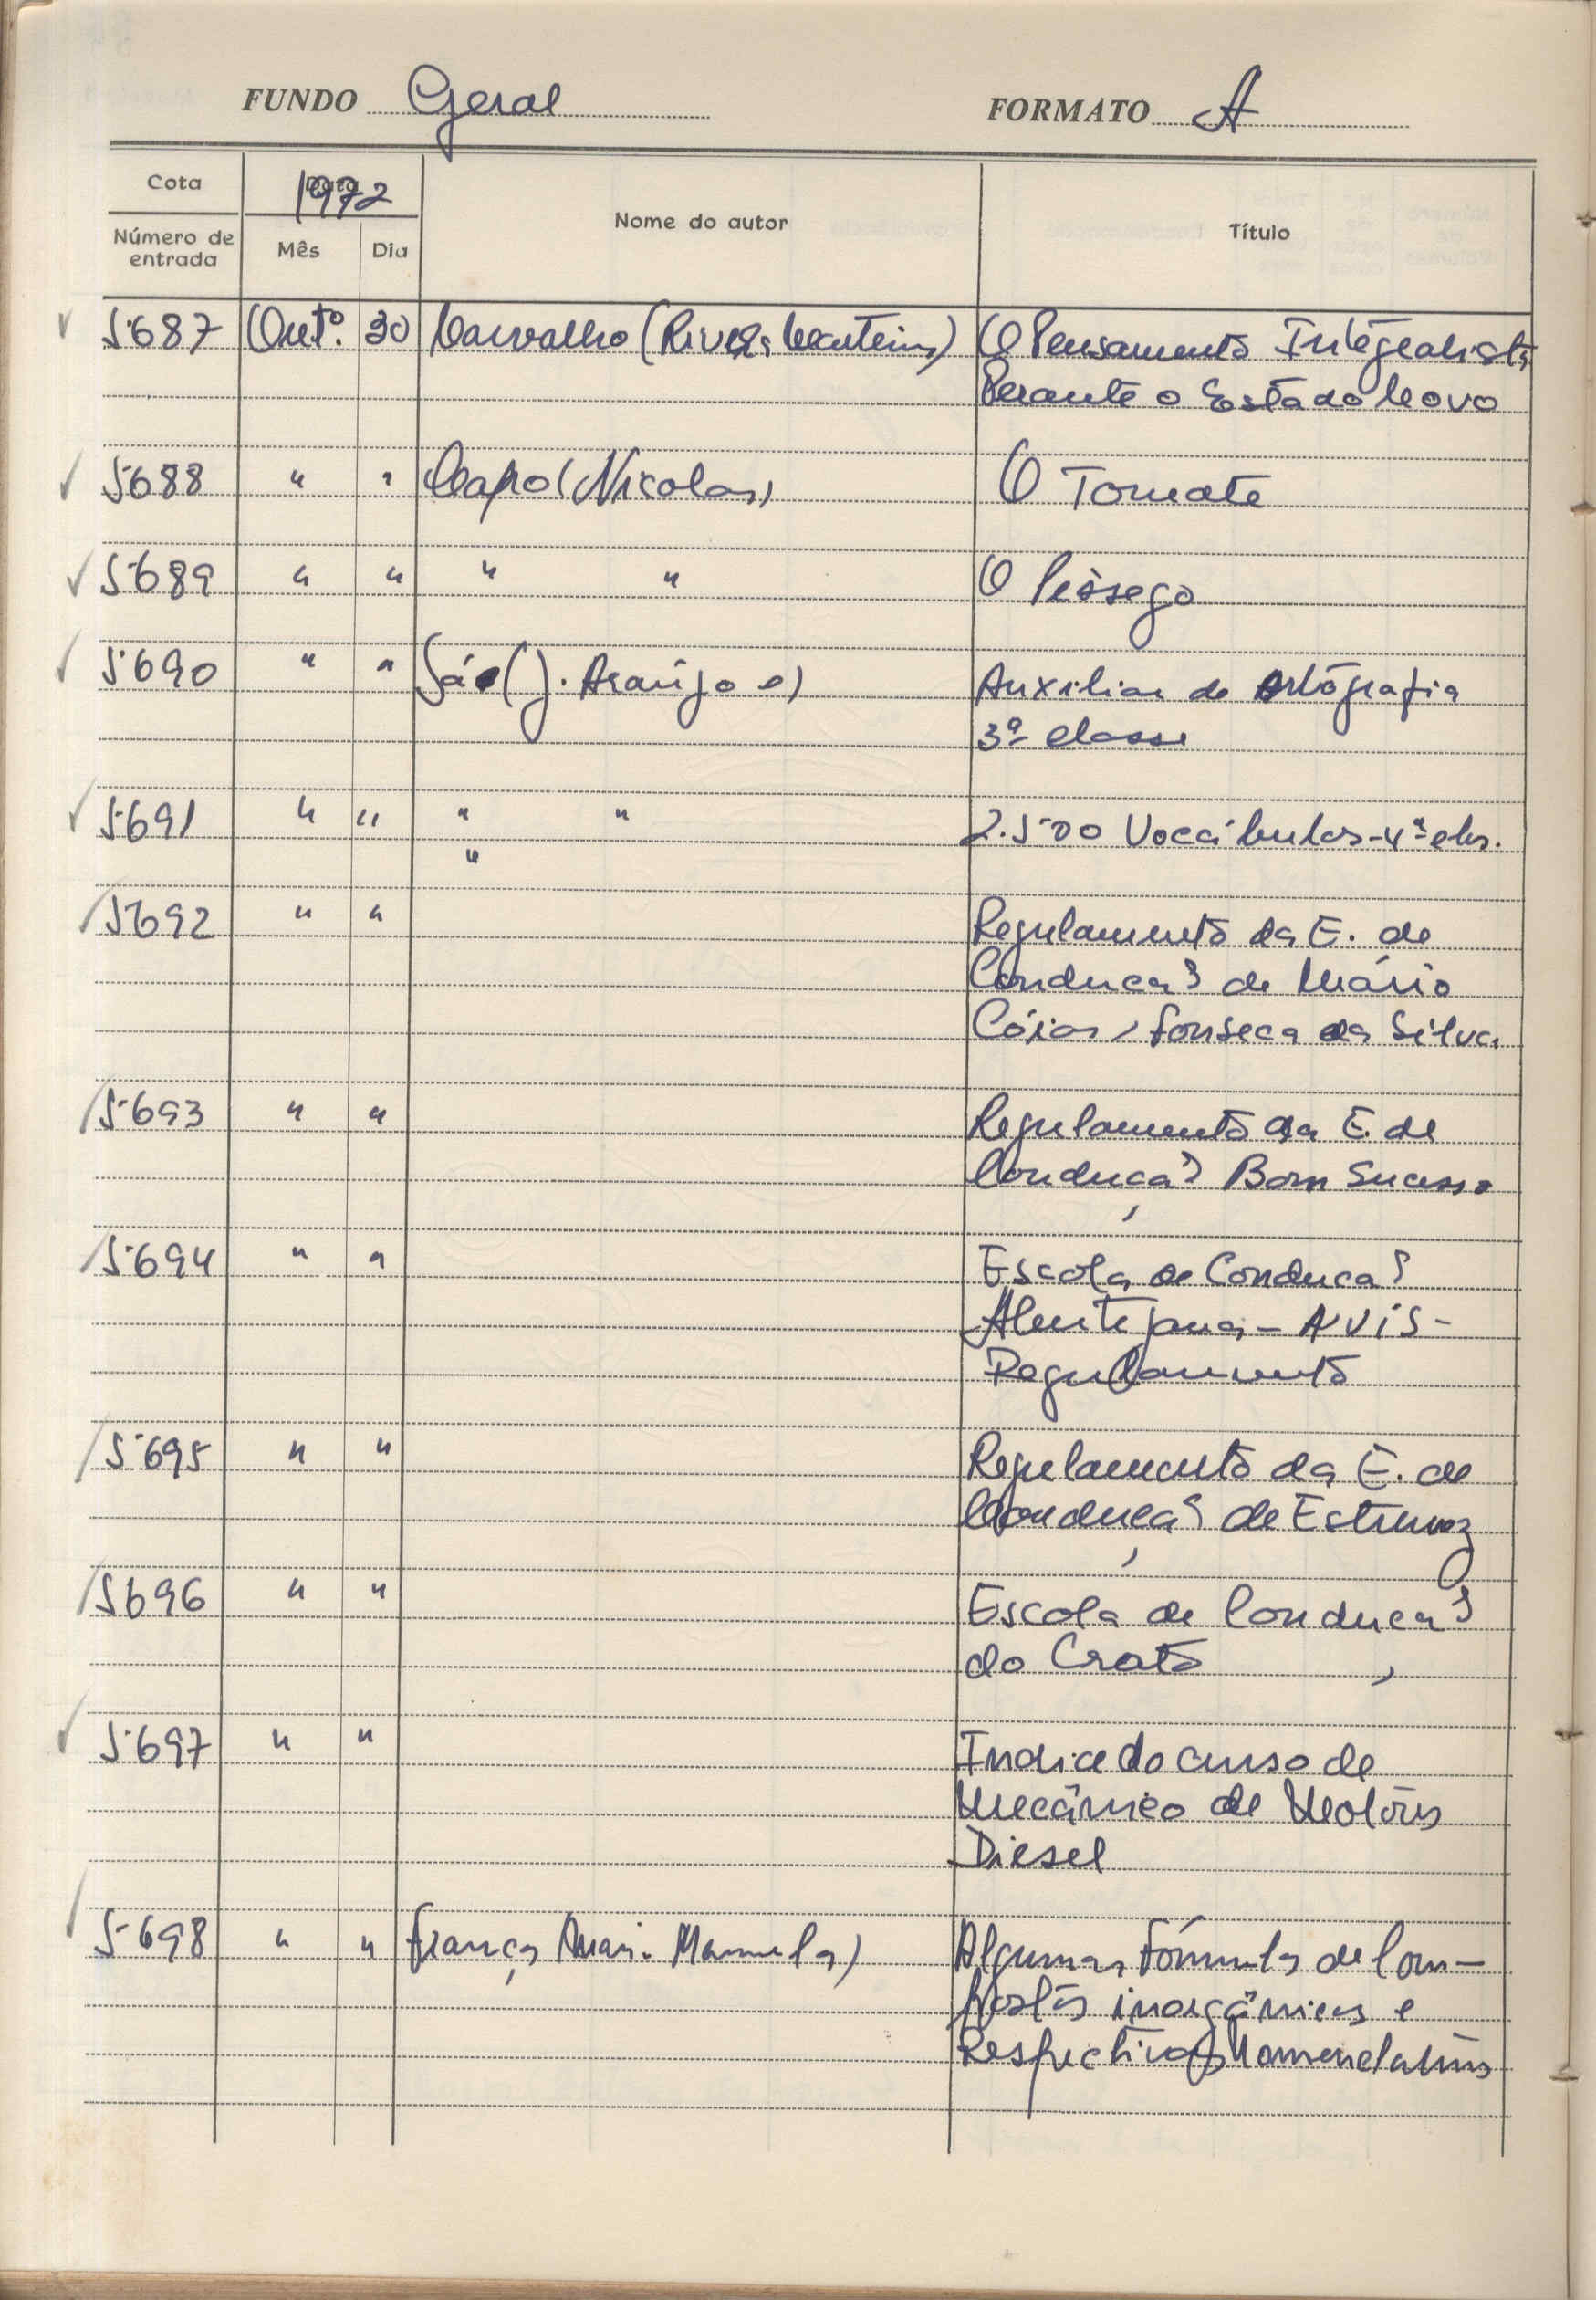 FUNDO Geral FORMATO A
Cota Data 1972 Nome do autor Título
Número de entrada Mês Dia
5687 Outº. 30 Carvalho (Rivera Monteiro) O Pensamento Integralista
Perante o Estado Novo
5688 " " Capo (Nicolas) O Tomate
5689 " " " " O Pêssego
5690 " " Sá (J. Araújo e) Auxiliar de Ortografia
3ª classe
5691 " " " " 2.500 Vocábulos - 4ª cls.
"
5692 " " Regulamento da E. de
Condução de Mário
Cóias, Fonseca da Silva
5693 " " Regulamento da E. de
Condução Bom Sucesso
5694 " " Escola de Condução
Alentejana - AVIS -
Regulamento
5695 " " Regulamento da E. de
Condução de Estremoz
5696 " " Escola de Condução
do Crato
5697 " " Indice do curso de
Mecânico de Motores
Diesel
5698 " " França Manuela) Algumas Fórmulas de Com-
postos inorgânicos e
Respectivas Nomenclaturas